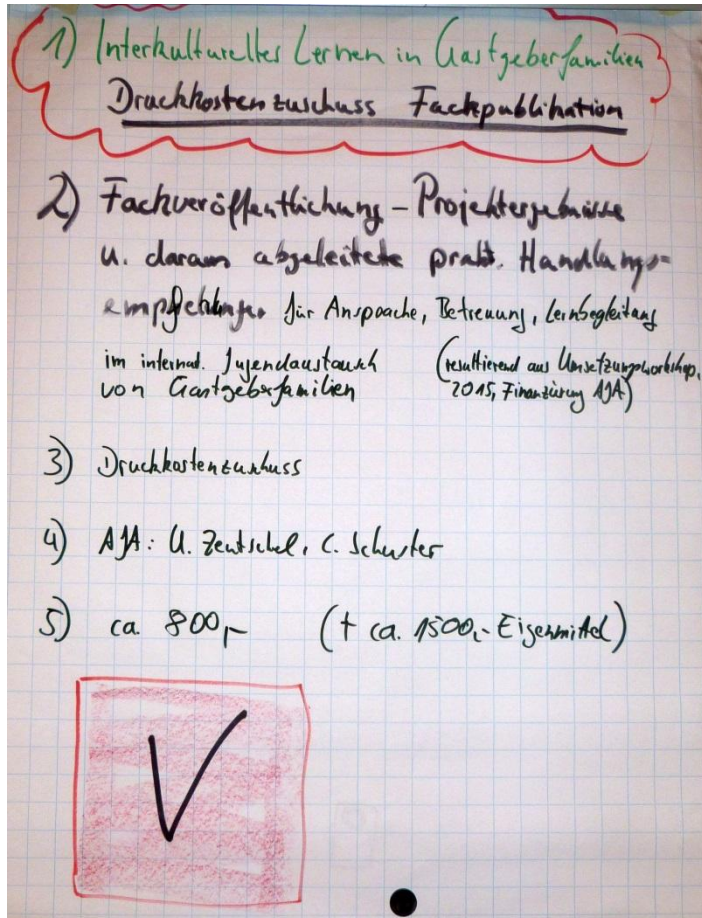 1) Interkulturelles Lernen in Gastgeberfamilien
Druckkostenzuschuss Fachpublikation
2) Fachveröffentlichung - Projektergebnisse
u. daraus abgeleitete prakt. Handlungs-
empfehlungen für Ansprache, Betreuung, Lernbegleitung
im internat. Jugendaustausch (resultierend aus Umsetzungsworkshop,
von Gastgeberfamilien 2015, Finanzierung AJA)
3) Druckkostenzuschuss
4) AJA: U. Zentschel, C. Schuster
5) ca. 800,- (+ ca. 1500,- Eigenmittel)
V